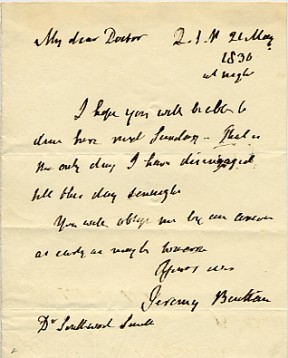 My dear Doctor Q.S.P. 21 May
1830
at night
I hope you will be able to
dine here next Sunday - that is
the only day I have disengaged
till this day sennight
You will oblige me by an answer
as early as may be
Yours ever
Jeremy Bentham
Dr Southwood Smith